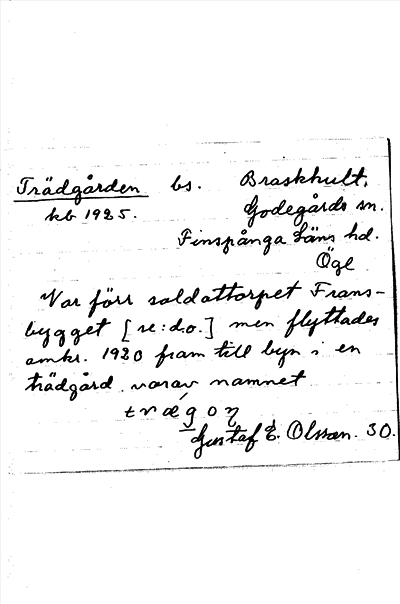 Trädgården bs. Braskhult,
kb 1925. Godegårds sn.
Finspånga Läns hd.
Ögl
Var förr soldattorpet Frans-
bygget [se: d.o.] men flyttades
omkr. 1920 fram till byn i en
trädgård varav namnet
Gustaf E. Olsson. 30.